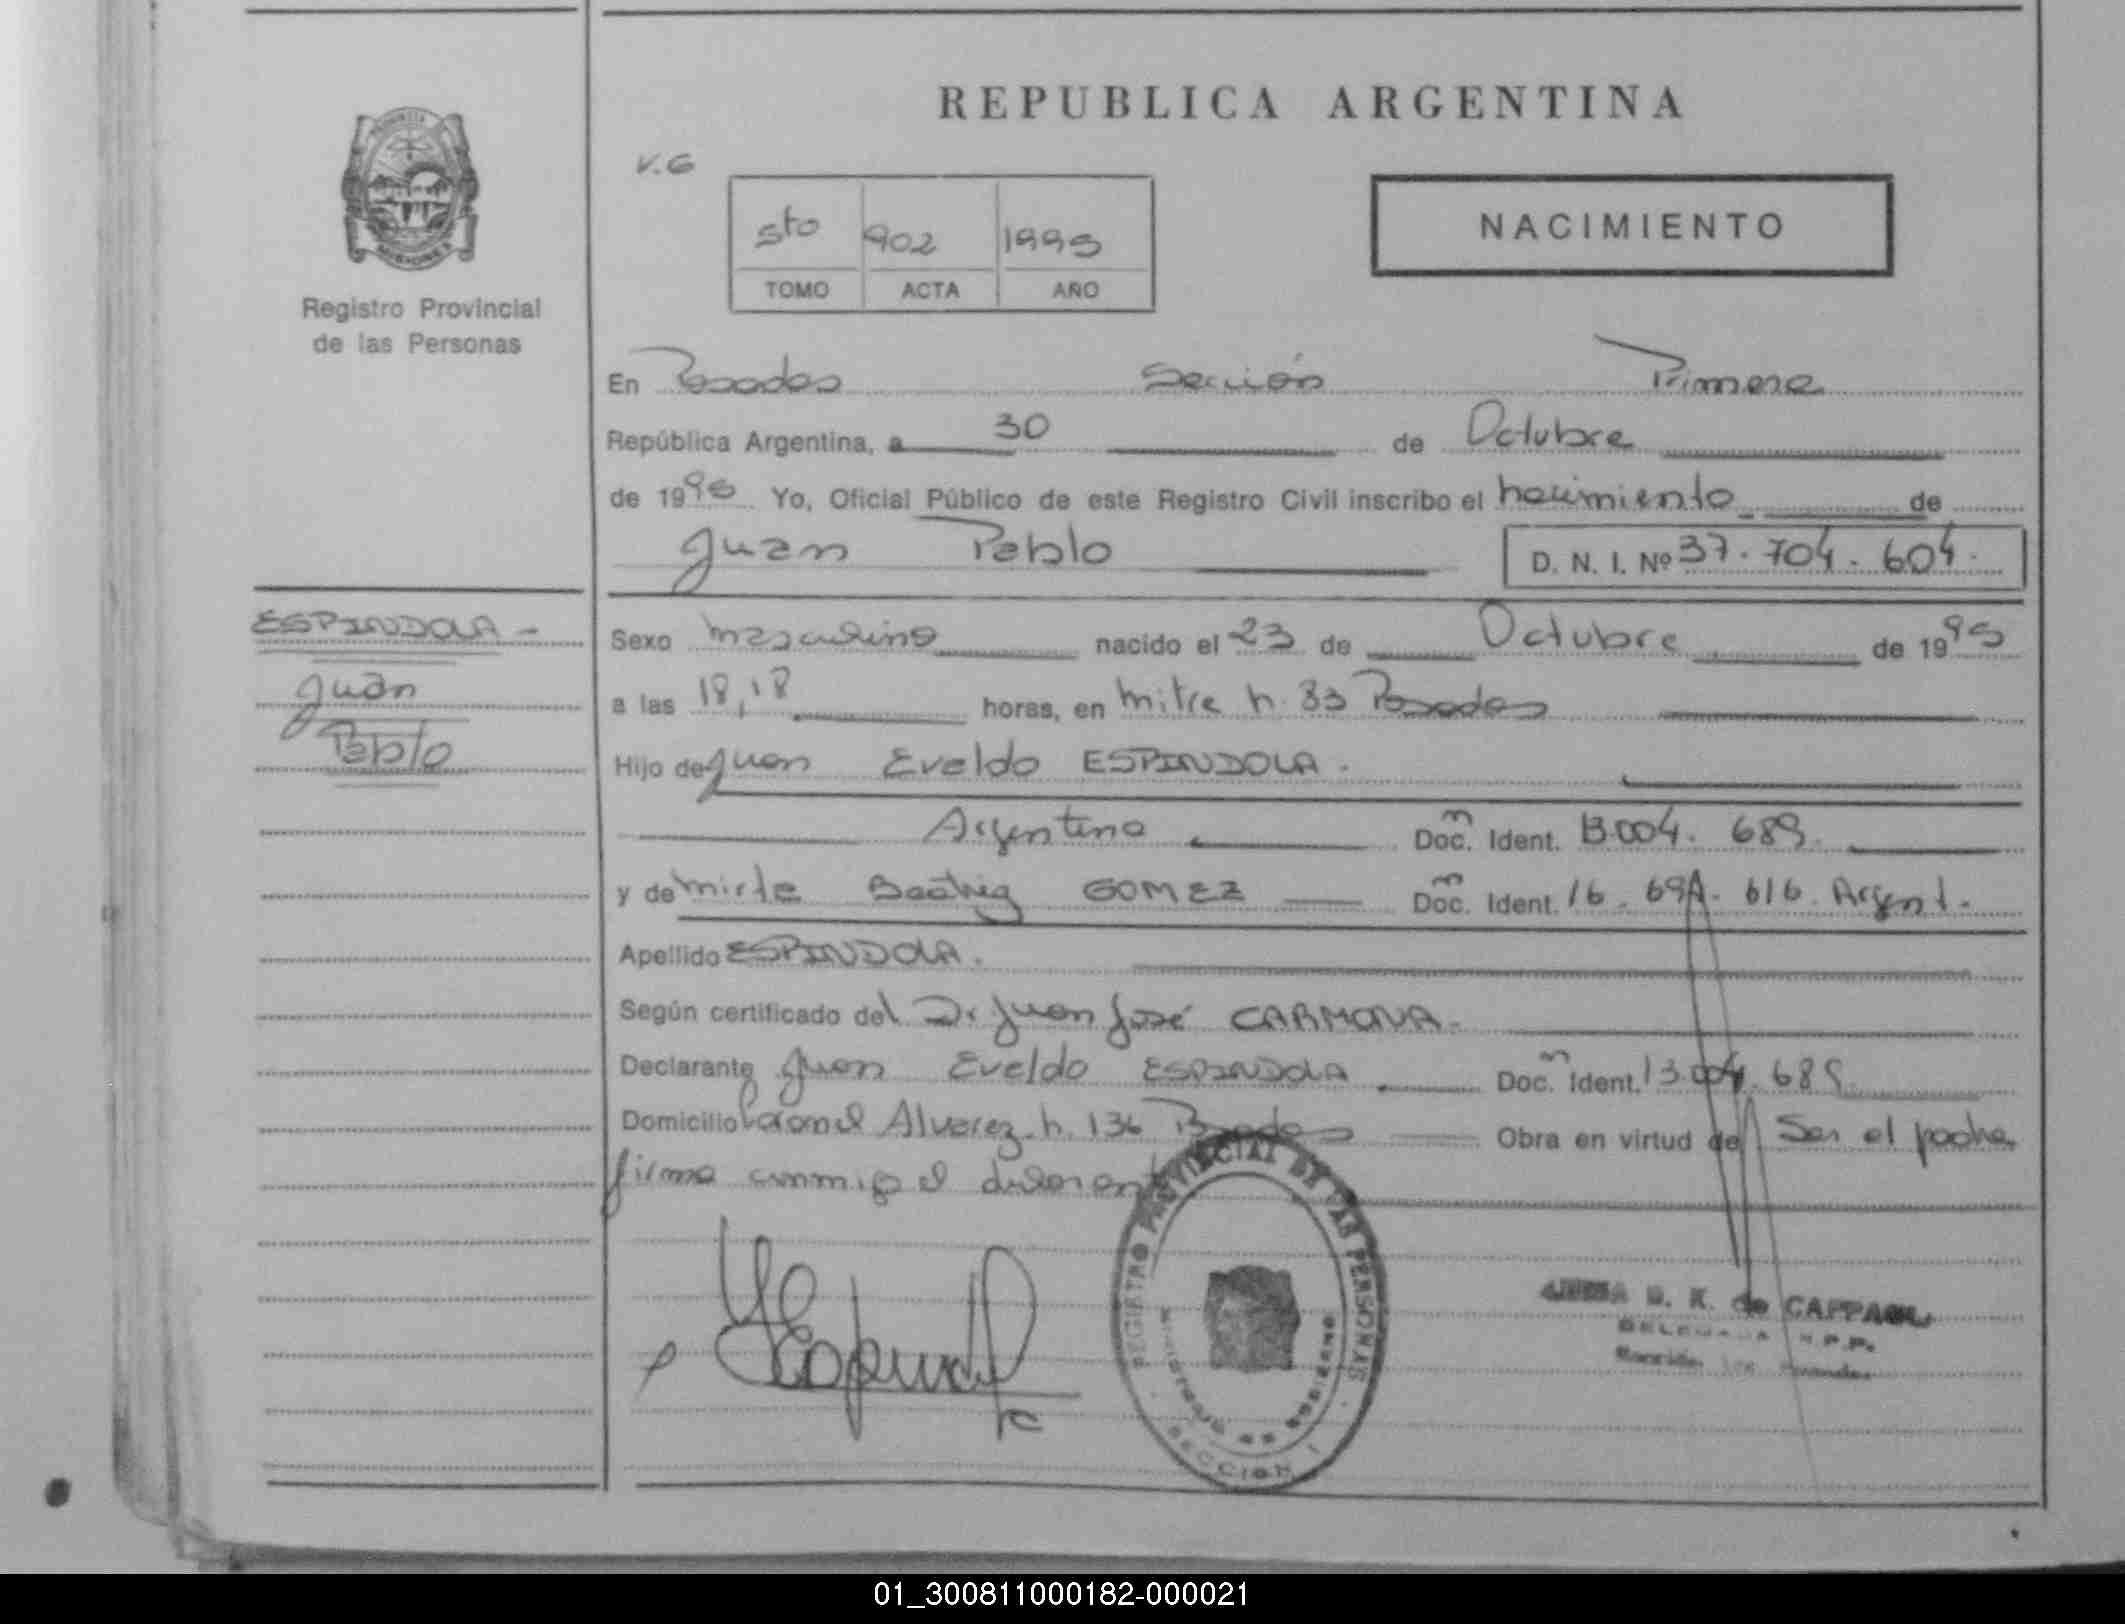 REPUBLICA ARGENTINA
V.G
5to 902 1995
TOMO ACTA AÑO
NACIMIENTO
PROVINCIA
MISIONES
Registro Provincial
de las Personas
En Posadas Sección Primera
República Argentina, a 30 de Octubre
de 1995 Yo, Oficial Público de este Registro Civil inscribo el nacimiento de
Juan Pablo D. N. I. Nº 37.704.604.
ESPINDOLA -
Juan
Pablo
Sexo masculino nacido el 23 de Octubre de 1995
a las 18,18 horas, en mitre n. 83 Posadas
Hijo de Juan Evaldo ESPINDOLA.
Argentino Doc. m Ident. 13.004.689.
y de mirta Beatriz GOMEZ Doc. m Ident. 16.691.616. Argent.
Apellido ESPINDOLA.
Según certificado del Dr Juan José CARMONA.
Declarante Juan Evaldo ESPINDOLA Doc. m Ident. 13.004.689.
Domicilio Coronel Alvarez n. 136 Posadas Obra en virtud de Ser el padre
firma conmigo el declarante
REGISTRO PROVINCIAL DE LAS PERSONAS
MINISTERIO DE GOBIERNO
SECCION 1
B. K. de
01_300811000182-000021